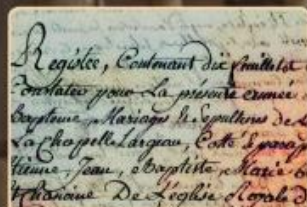 Registre, Contenant dix feuillets
Constater pour La présente année
Baptême, Mariages & Sepultures de
La chapelle Largeau, Cotté & parap
Etienne, Jean, Baptiste, Marie
Chanoine De L'église Royale